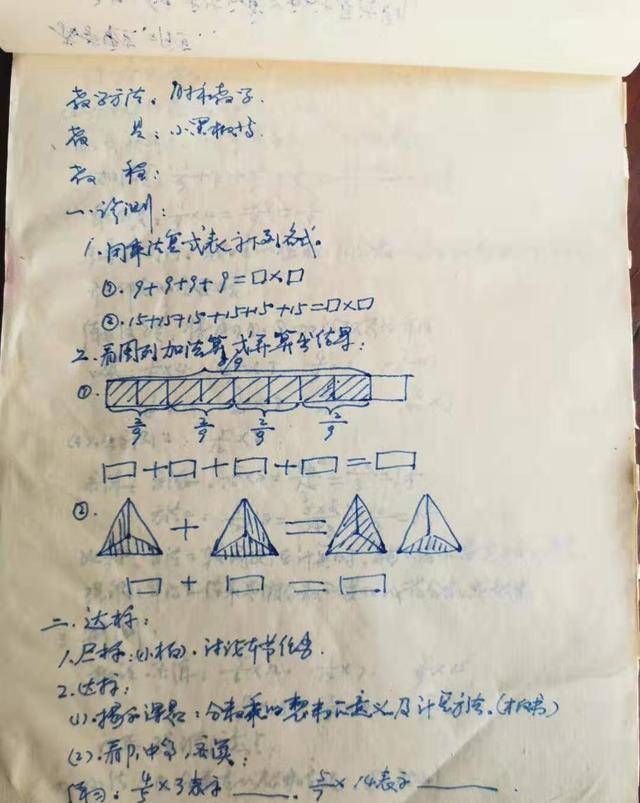 教学方法：目标教学.
教 具：小黑板等.
教 程：
一.诊测：
1.用乘法算式表示下列各式。
①.9+9+9+9=□×□
②.15+15+15+15+15+15=□×□
2.看图列加法算式并算出结果：
①.
2/9 2/9 2/9 2/9
□+□+□+□=□
②.
+ =
□+□=□
二.达标：
1.展标：(小构).讨读本节任务.
2.达标：
(1).揭示课题：分数乘以整数的意义及计算方法.(板书)
(2).看P.中
练习：4/5×3表示____.5/7×14表示____